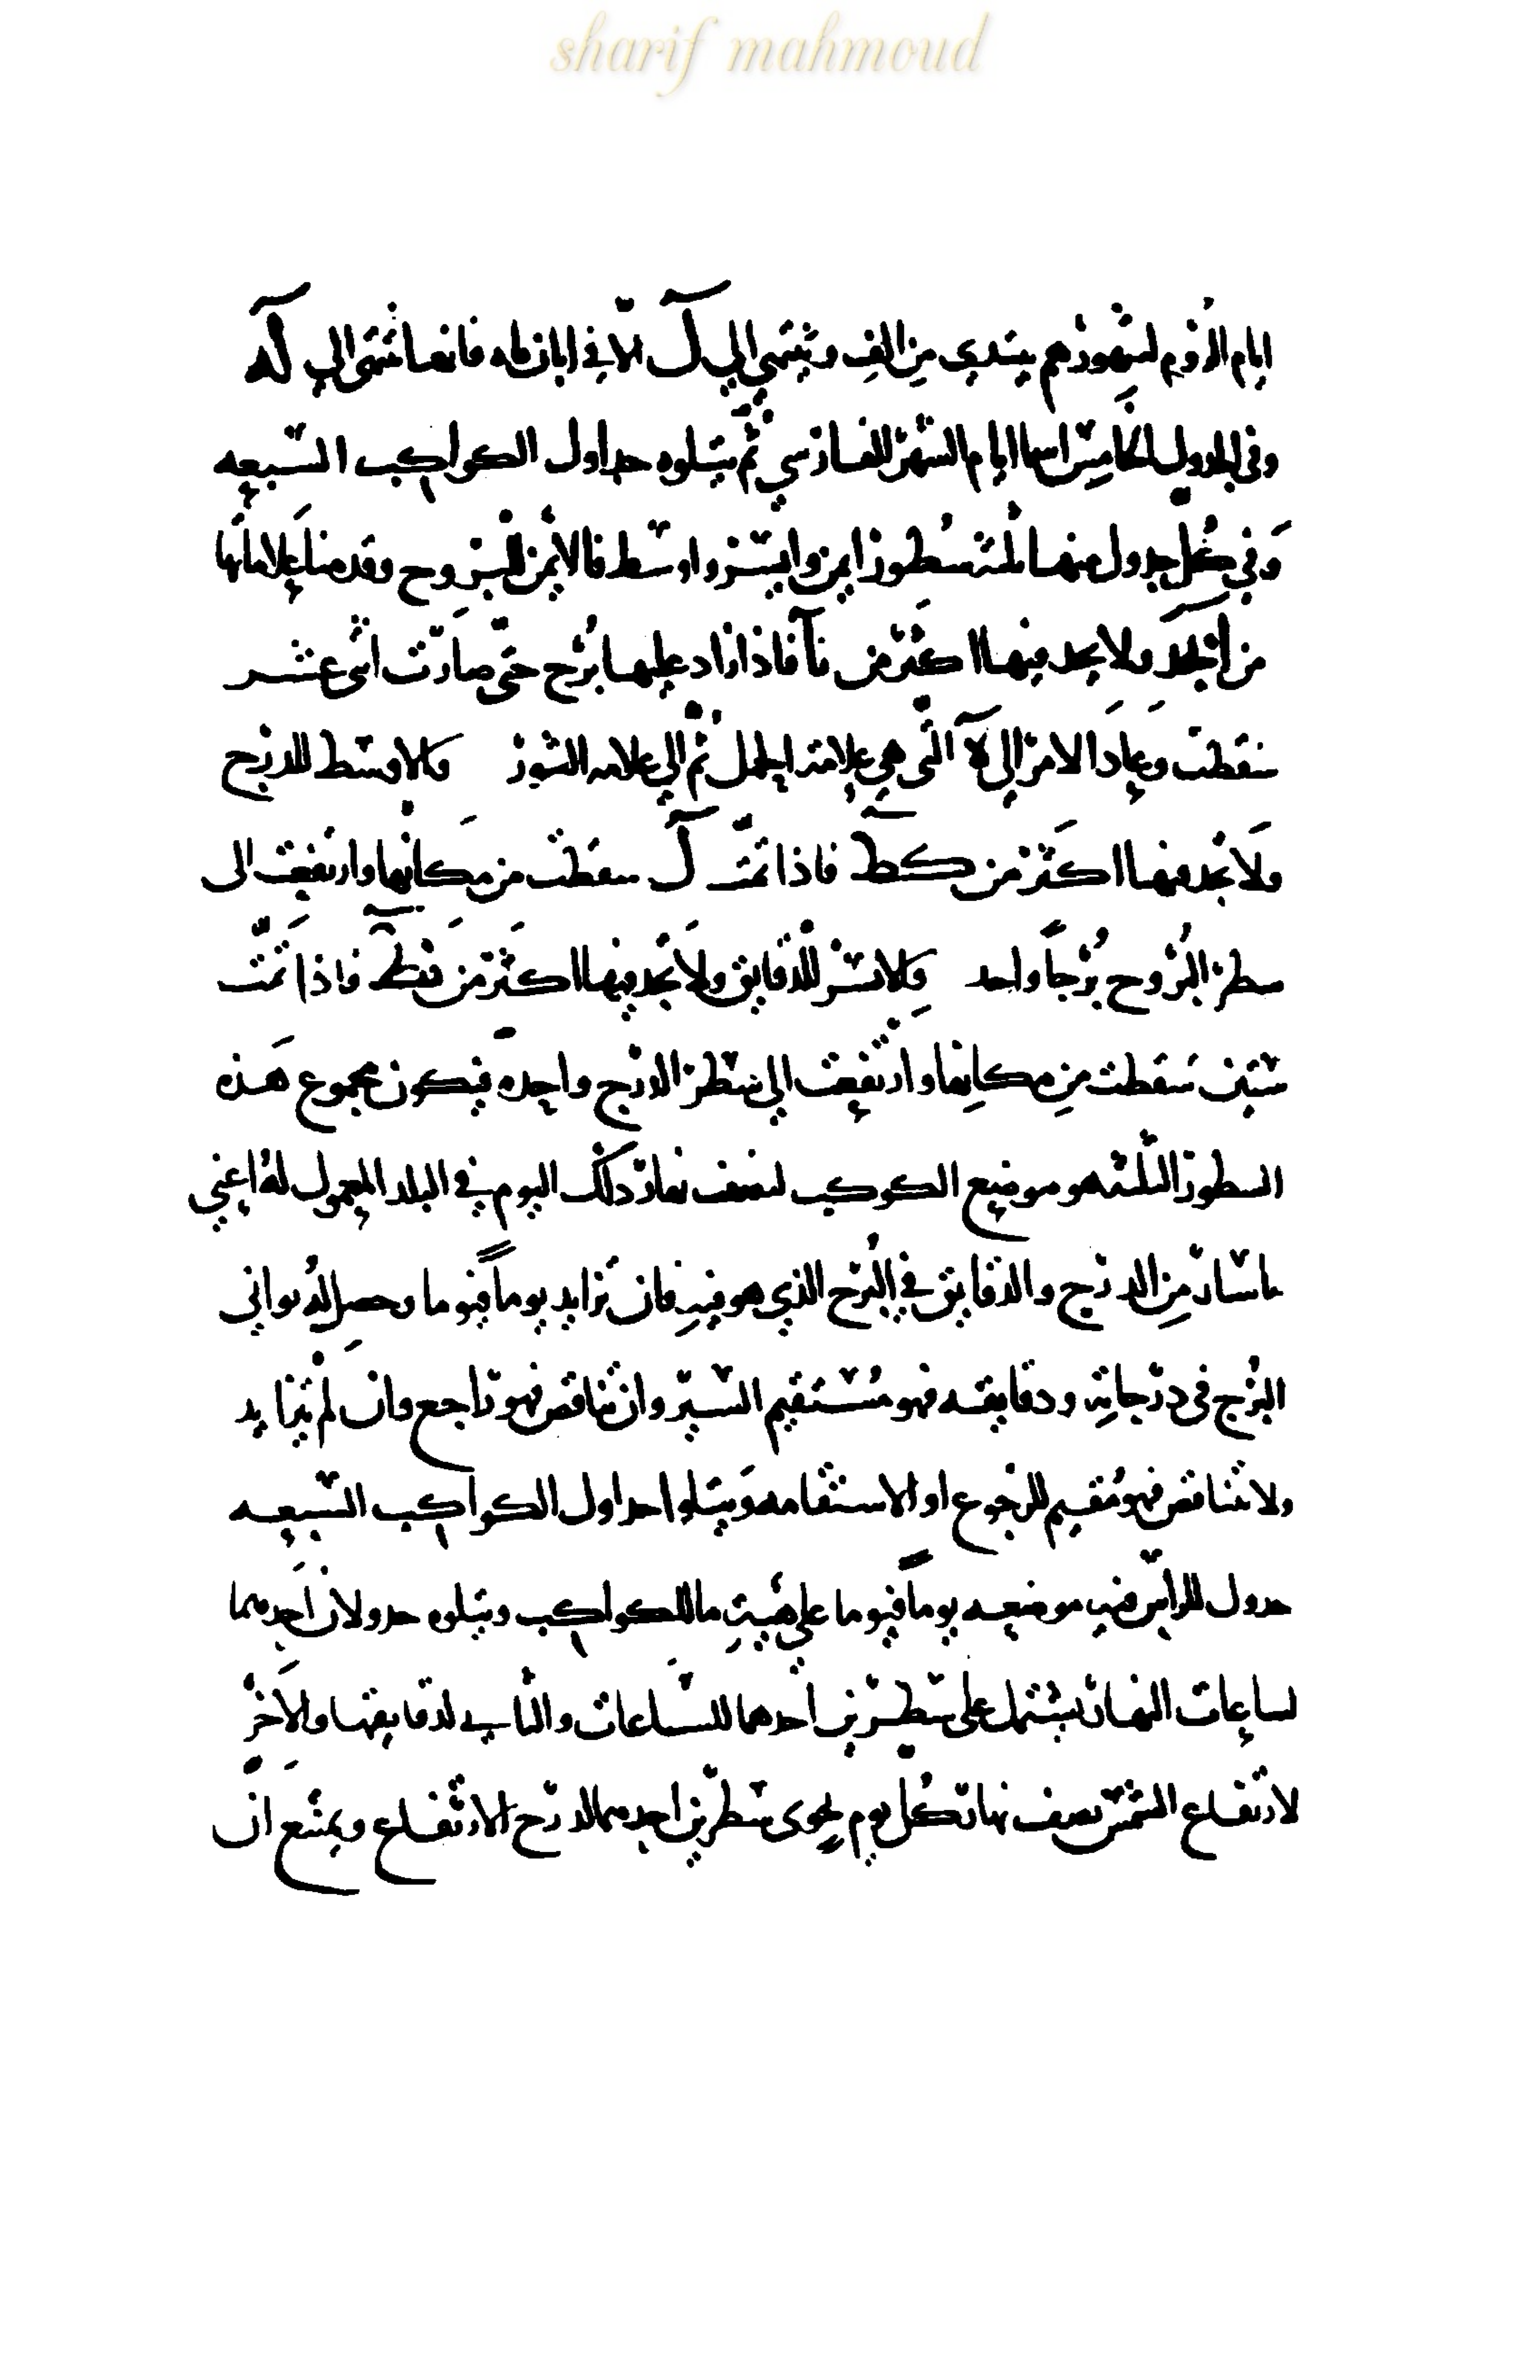 sharif mahmoud
ايام الروم لشهورهم يبتدي من الف وينتهي الي ل الا في ابان ماه فانها تنتهى الي له
وفي الجدول الخامس اسما ايام الشهر الفارسي ثم يتلوه جداول الكواكب السبعه
وَفي كُل جدول منها ثلثه سُطور ايمن وايسر واوسط فالايمن للبروح وقدمنا علاماتها
من ابجد ولا يجد فيها اكثر من يآ فاذا زاد عليها بُرْج حتى صارت اثنى عشر
سقطت وعاد الامر الي ه التي هي علامة الحمل ثم الي علامه الثور والاوسط للدرج
ولا تجد فيها اكثر من كط فاذا تمت ل سقطت من مكانها وارتفعت الى
سطر البُرُوج بُرْجاً واحد والايسر للدقايق ولا تجد فيها اكثر من نط فاذا تمت
ستين سقطت من مكانها وارتفعت الي سطر الدرج واحده فيكون مجموع هذه
السطور الثلثه هو موضع الكوكب لنصف نهار ذلك اليوم في البلد المعمول له اعني
ما سار من الدرج والدقايق في البُرْج الذي هو فيه فان تزايد يوماً فيوما وحصل له توالي
البُرْج في درجاته ودقايقه فهو مُستقيم السير وان تناقص فهو راجع وان لم يتزايد
ولا تناقص فهو مُقيم للرجوع او الاستقامه وَيتلوا جداول الكواكب السبعه
جدول للراس فيه موضعه يوماً فيوما علي هيئة ما للكواكب ويتلوه جدولان احدهما
لساعات النهار يشتمل على سطرين احدهما للساعات والثاني لدقايقها والاخر
لارتفاع الشمس نصف نهار كُل يوم يحوى سطرين احدهما لدرج الارتفاع ويمتنع ان